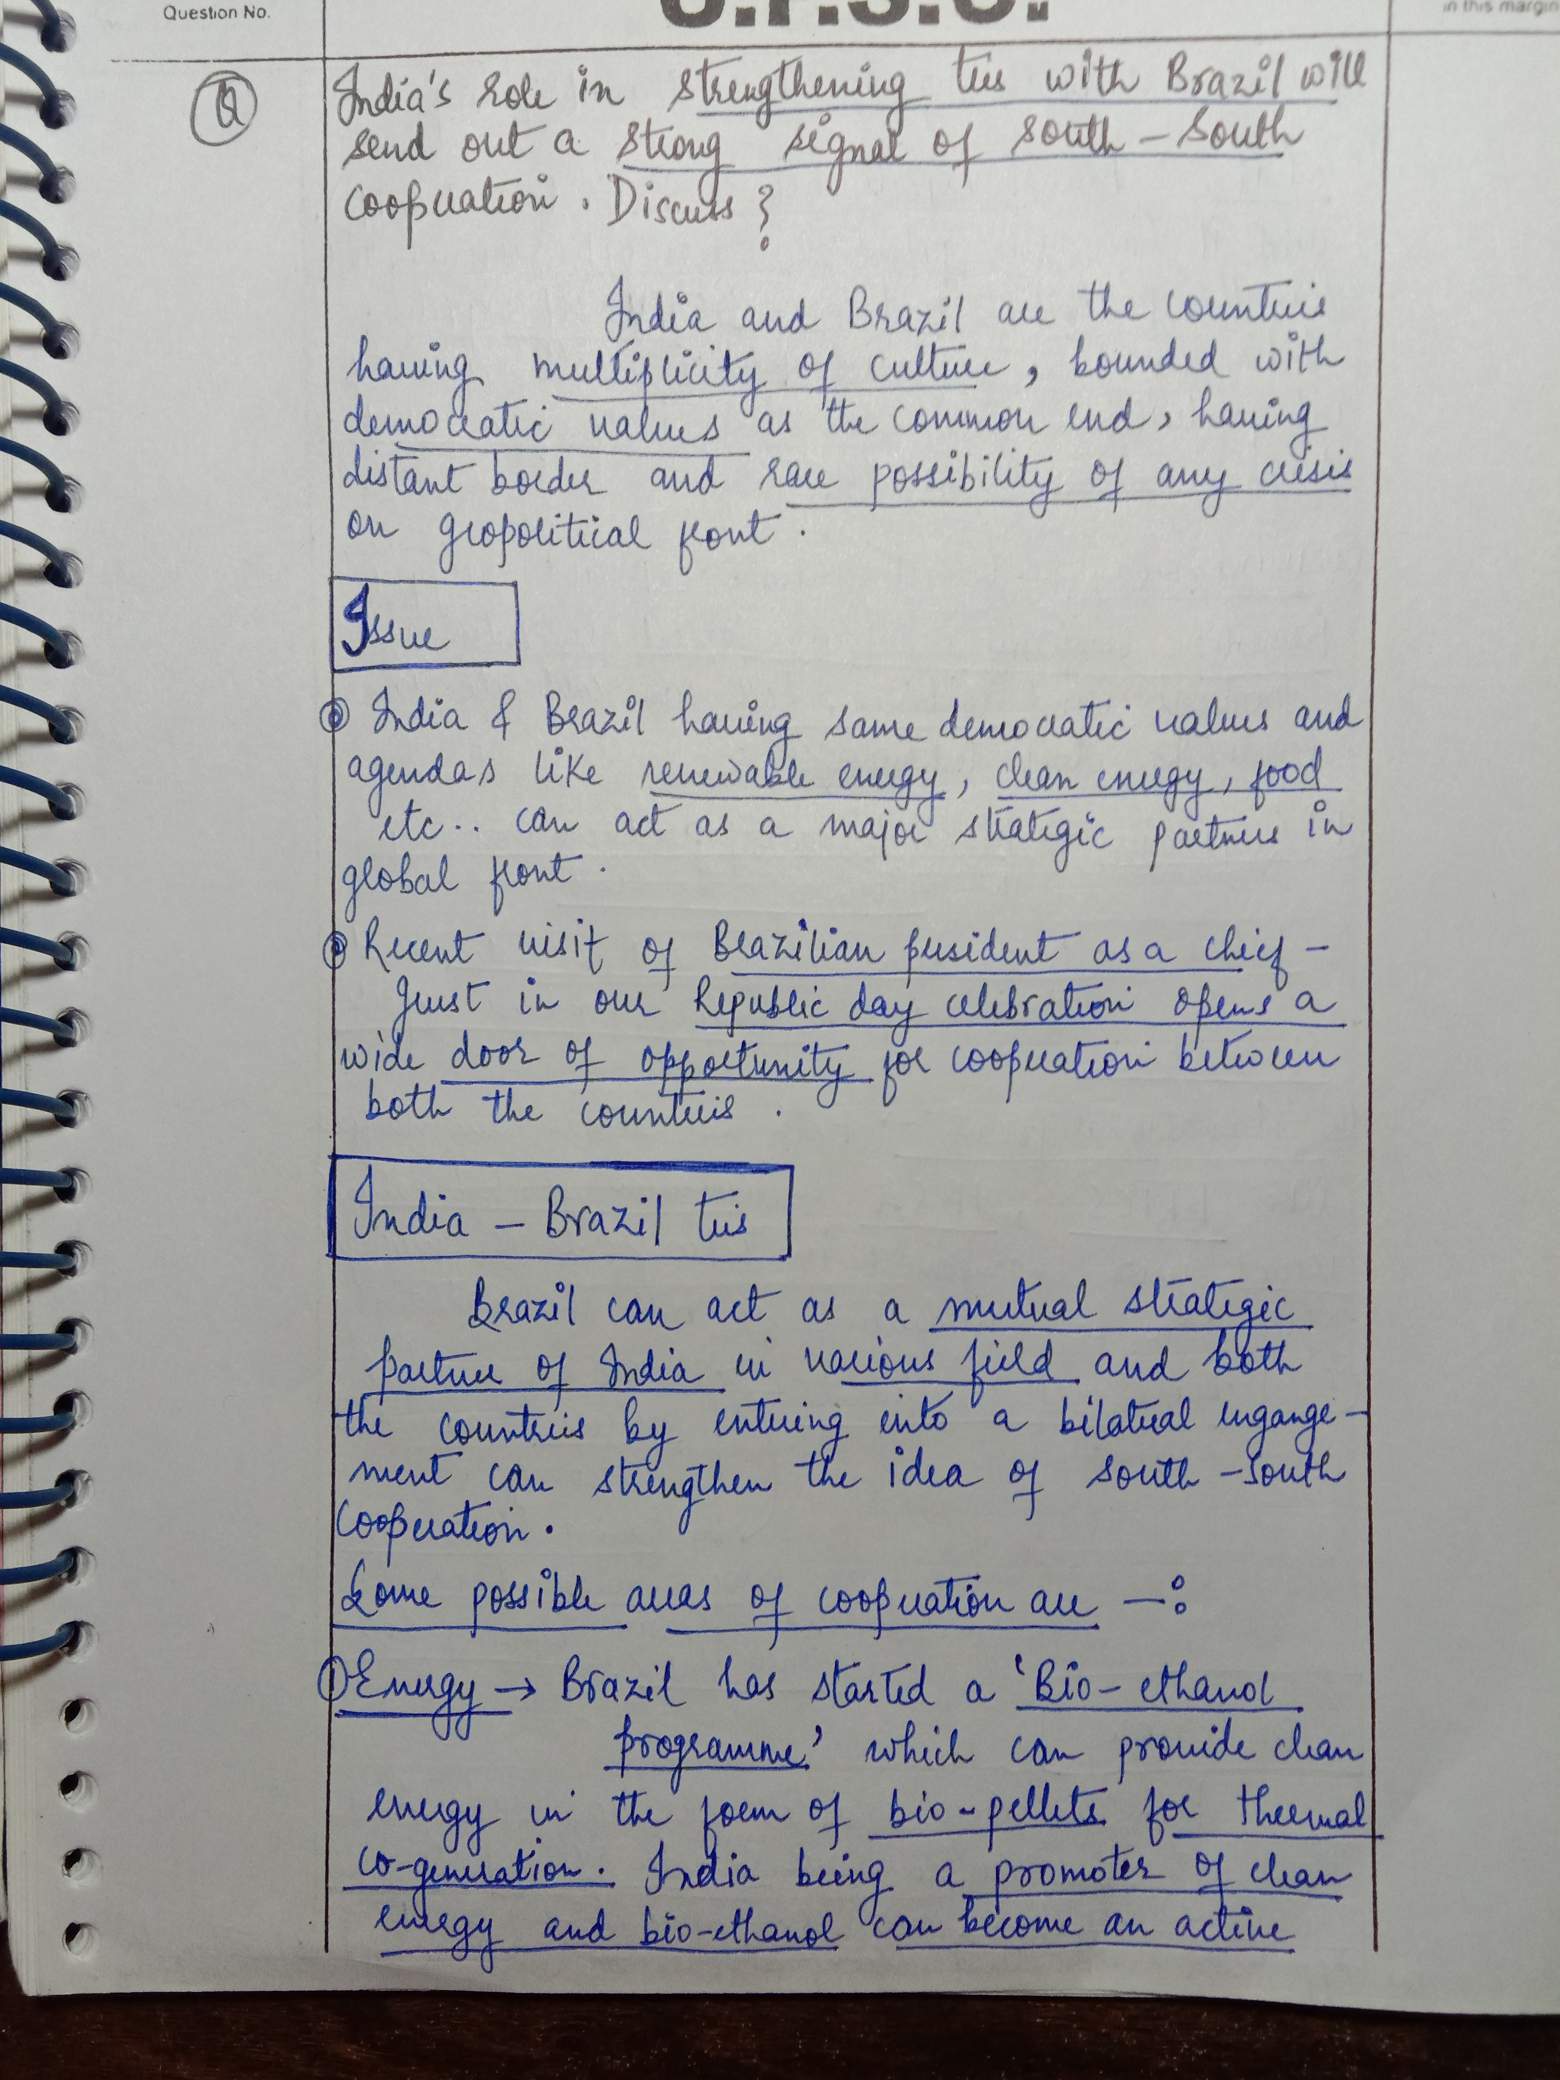 Question No.
U.P.S.C.
in this margin
Q
India's role in strengthening ties with Brazil will
send out a strong signal of south - south
cooperation. Discuss?
India and Brazil are the countries
having multiplicity of culture, bounded with
democratic values as the common end, having
distant border and rare possibility of any crisis
on geopolitical front.
Issue
India & Brazil having same democratic values and
agendas like renewable energy, clean energy, food
etc.. can act as a major strategic partners in
global front.
Recent visit of Brazilian president as a chief -
guest in our Republic day celebration opens a
wide door of opportunity for cooperation between
both the countries.
India - Brazil ties
Brazil can act as a mutual strategic
partner of India in various field and both
the countries by entering into a bilateral engange-
ment can strengthen the idea of south - south
cooperation.
Some possible areas of cooperation are —:
① Energy → Brazil has started a 'Bio - ethanol
programme' which can provide clean
energy in the form of bio - pellets for thermal
co-generation. India being a promoter of clean
energy and bio-ethanol can become an active